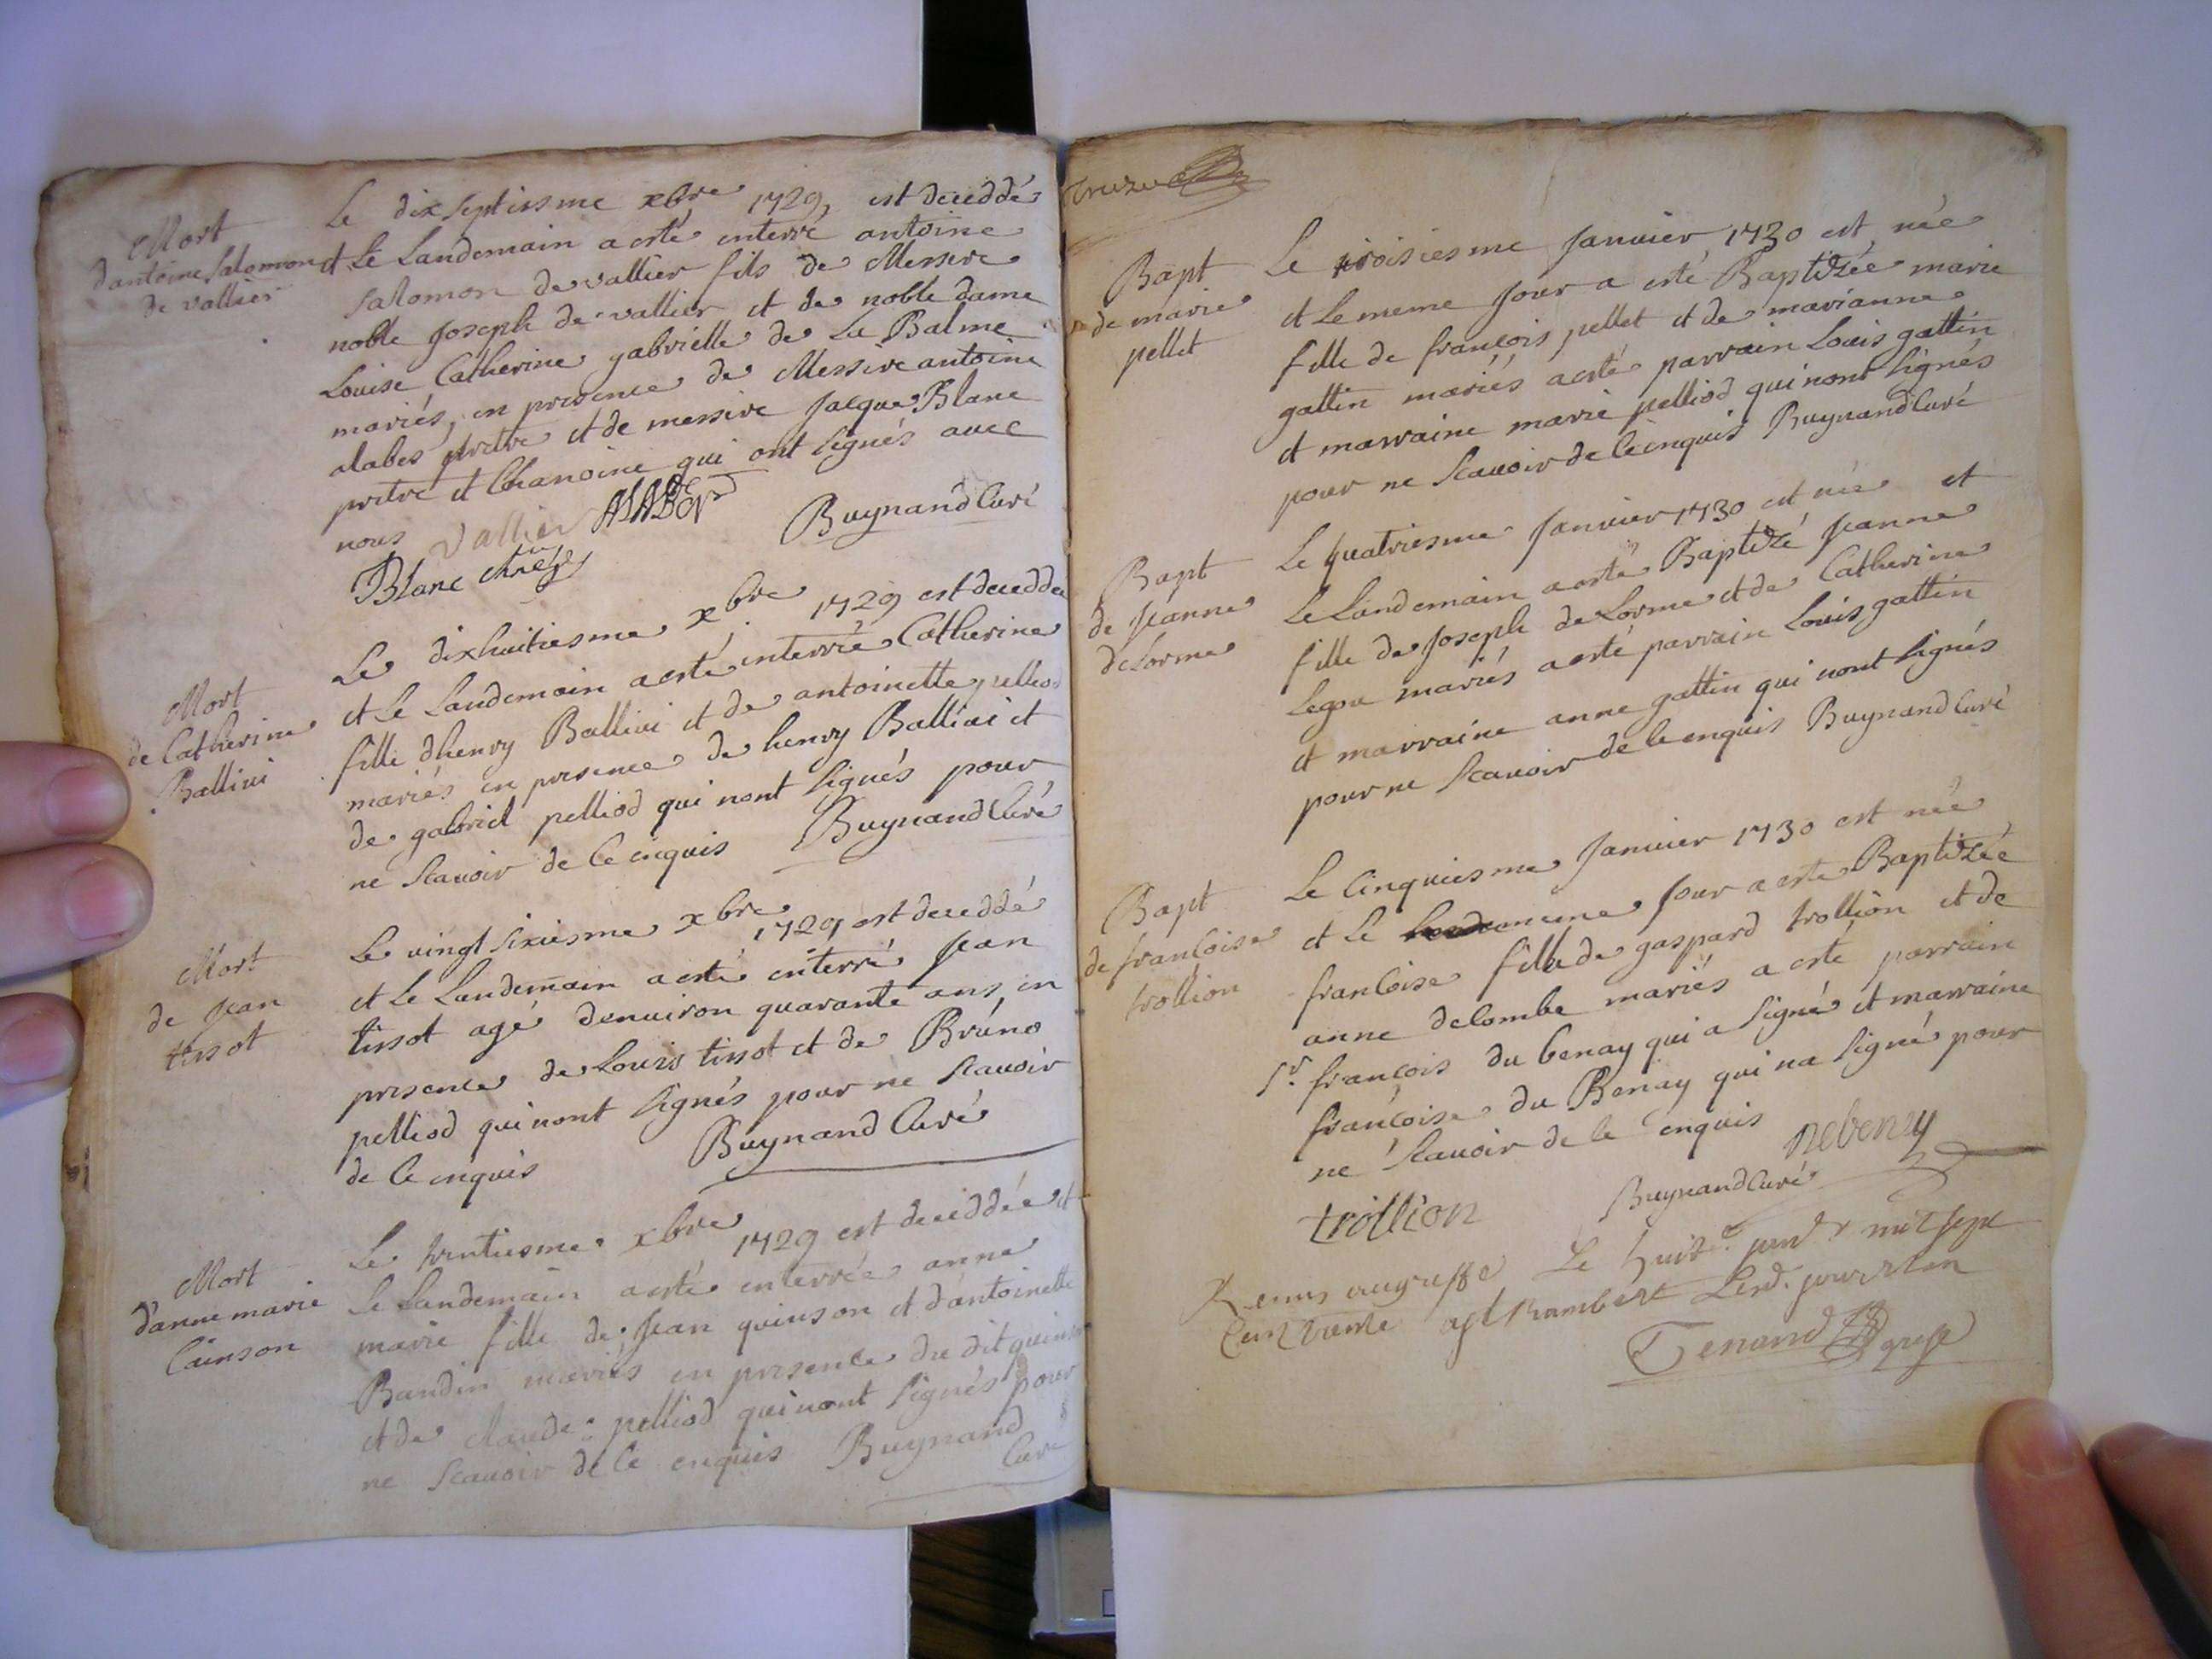 Mort
d'antoine Salomon
de vallier
Le dixseptiesme xbre 1729, est deceddé
et Le Landemain a esté enterré antoine
Salomon de vallier fils de Messire
noble Joseph de vallier et de noble dame
Louise Catherine gabrielle de La Balme
mariés, en presence de Messire antoine
alabes pretre et de messire Jacque Blanc
pretre et Chanoine qui ont signés avec
nous Vallier ALABE
Buynand Curé
Blanc
Mort
de Catherine
Ballivi
Le dixhuitiesme xbre 1729 est deceddée
et Le Landemain a esté enterrée Catherine
fille dhenry Ballivi et de antoinette pelliod
mariés en presence de henry Ballivi et
de gabriel pelliod qui nont signés pour
ne scauoir de ce enquis Buynand Curé
Mort
de Jean
tissot
Le vingt sixiesme xbre 1729 est deceddé
et Le Landemain a esté enterré Jean
tissot agé denuiron quarante ans, en
presence de Louis tissot et de Bruno
pelliod qui nont signés pour ne scauoir
de ce enquis Buynand Curé
Mort
d'anne marie
Cuinson
Le trentiesme xbre 1729 est deceddée et
Le Landemain a esté enterrée anne
marie fille de Jean quinson et d'antoinette
Baudin mariés en presence du dit quinson
et de claude pelliod qui nont signés pour
ne scauoir de ce enquis Buynand
Curé
Bapt
de marie
pellet
Le troisiesme Januier 1730 est née
et Le meme Jour a esté Baptizée marie
fille de françois pellet et de marianne
gattin mariés a esté parrain Louis gattin
et marraine marie pelliod qui nont signés
pour ne scauoir de ce enquis Buynand Curé
Bapt
de Jeanne
deLorme
Le quatriesme Januier 1730 est née et
Le Landemain a esté Baptizé Jeanne
fille de Joseph de Lorme et de Catherine
mariés a esté parrain Louis gattin
et marraine anne gattin qui nont signés
pour ne scauoir de ce enquis Buynand Curé
Bapt
de francoise
trollion
Le Cinquiesme Januier 1730 est née
et Le meme Jour a esté Baptizée
francoise fille de gaspard trollion et de
anne delombe mariés a esté parrain
Sr. françois du benay qui a signé et marraine
françoise du Benay qui na signé pour
ne scauoir de ce enquis
trollion Buynand Curé
Remis au greffe Le huit
Cent trente